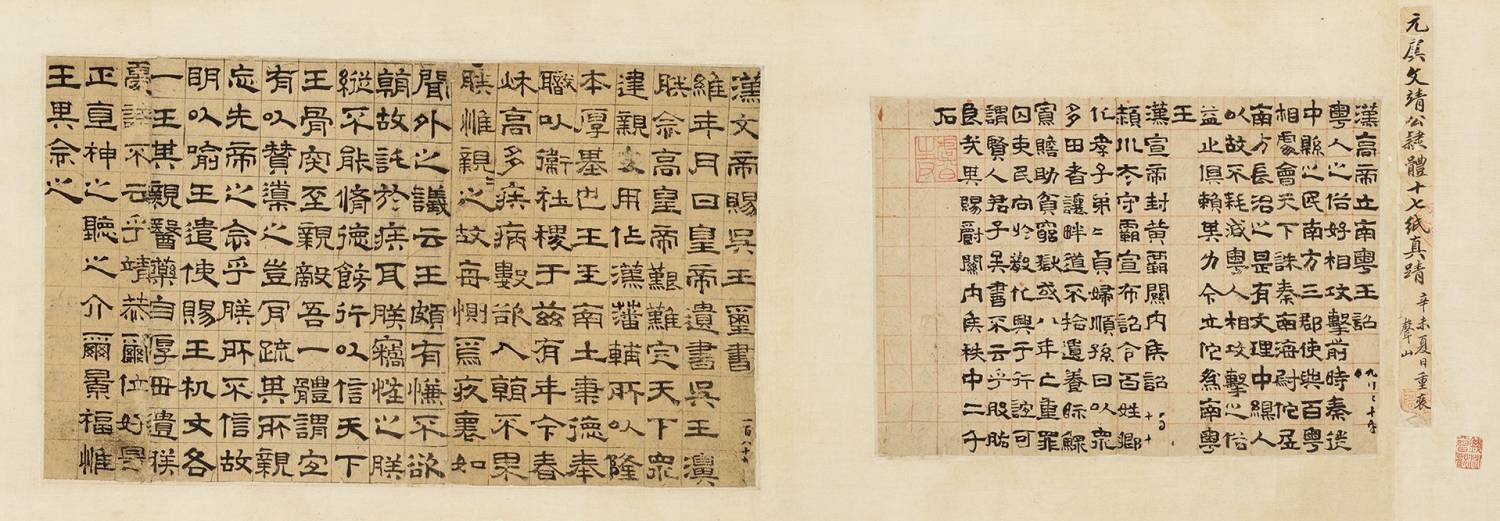 元虞文靖公隸體十七紙真蹟
辛未夏日重裝
聲山
漢高帝立南粵王詔
粵人之俗好相攻擊前時秦徙
中縣之民南方三郡使與百粵
相處會天下誅秦南海尉佗居
南方長治之是有文理中縣人
以故不耗減粵人相攻擊之俗
益止俱賴其力今立佗為南粵
王
漢宣帝封黃霸關內矦詔
潁川太守霸宣布詔令百姓鄉
化孝子弟〻貞婦順孫日以眾
多田者讓畔道不拾遺養眎鰥
寡贍助貧窮獄或八年亡重罪
囚吏民向於教化興于行誼可
謂賢人君子矣書不云乎股肱
良哉其賜爵關內矦秩中二千
石
漢文帝賜吳王璽書
維年月日皇帝遺書吳王濞
朕念高皇帝艱難定天下眾
建親支用佔漢藩輔所以隆
本厚基也王王南土秉德奉
職以衛社稷于茲有年今春
秋高多疾病數欲入朝不果
朕惟親之故每惻焉疚衷如
聞外之議云王頗有慊不欲
朝故託於疾耳朕竊怪之朕
縱不能脩德飭行以信天下
王骨肉至親敵吾一體謂宜
有以贊導之豈有疏其所親
忘先帝之命乎朕所不信故
明以喻王遣使賜王机丈各
一王其親醫藥自厚毋遺朕
憂詩不云乎靖恭爾位好是
正直神之聽之介爾景福惟
王其念之